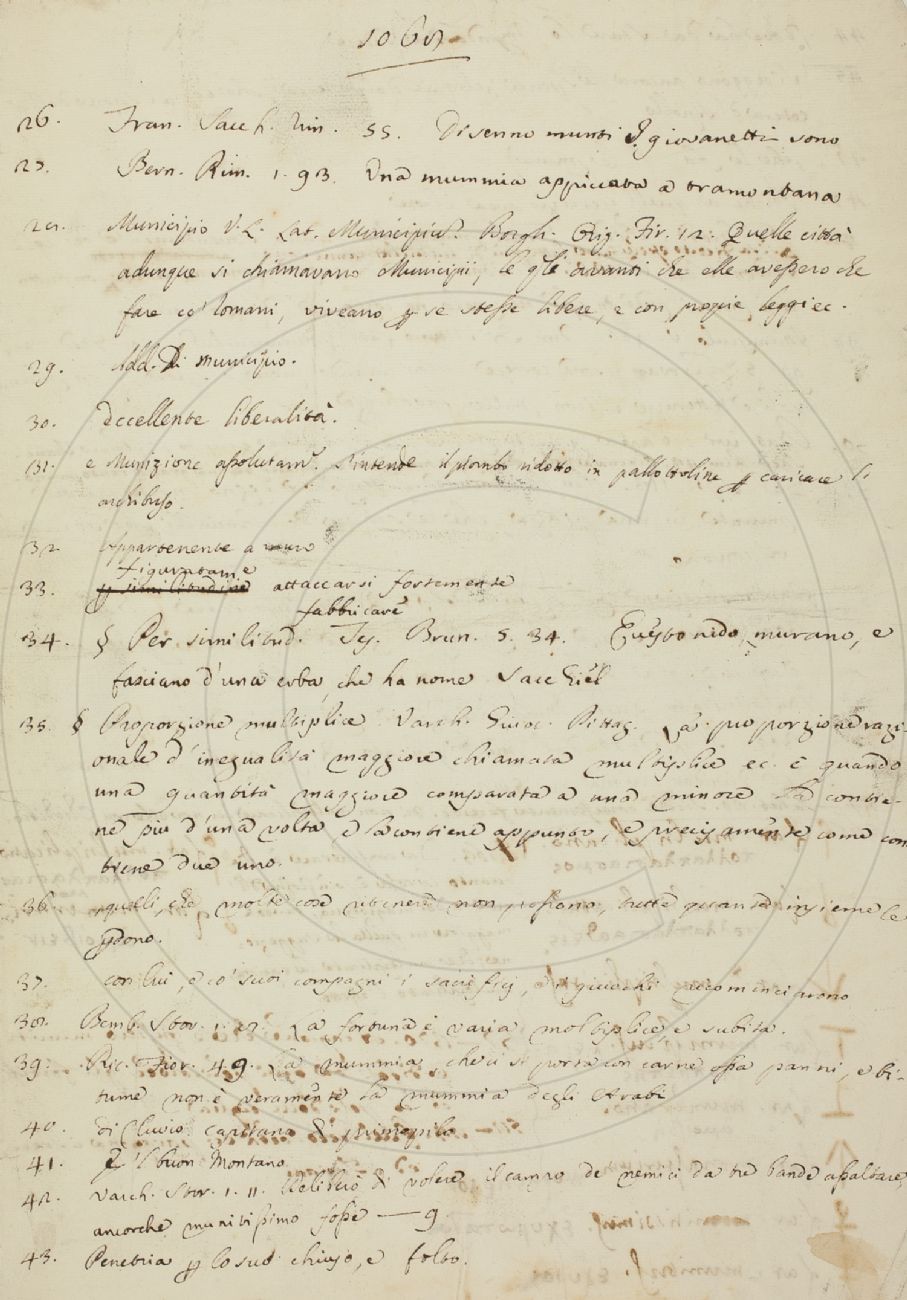 1068
26. Fran. Sacch. Rim. 55. Di senno munti i giovanetti sono
27. Bern. Rim. 1. 93. Una mummia appiccata a tramontana
28. Municipio V. L. Lat. Municipium. Borgh. Orig. Fir. 12. Quelle città
adunque si chiamavano Municipii, le qle avanti che elle avessero che
fare co' Romani, viveano p se stesse libere, e con propie leggi ec.
29. Add. Di municipio.
30. Eccellente liberalità.
31. e Munizione assolutam. s'intende il piombo ridotto in pallottoline p caricare li
archibuso.
32 Appartenente a muro
Figuratam e
33. p similitudine attaccarsi fortemente
fabbricare
34. § Per similitud. Tes. Brun. 5. 34. Ev nido, murano, e
fasciano d'una erba, che ha nome
35. § Proporzione multiplice. Varch. Giuoc. Pittag. La proporzione razi-
onale d'inegualità maggiore chiamata multiplice ec. è quando
una quantità maggiore comparata a una minore la contie-
ne più d'una volta, e la contiene appunto, e precisamente come con
tiene due uno.
36. quelli, che molte cose ritenere non possono, tutte quante insieme le
pdono.
37. con lui, e co' suoi compagni i sacrificj, e i giuochi ricominciarono
38. Bemb. Stor. 1. 12. La fortuna è varia moltiplice e subita.
39. Ric. Fior. 49. La mummia, che ci si porta con carne ossa panni, e bi-
tume non è veramente la mummia degli Arabi
40. di Cluvio capitano di primopilo
41. E 'l buon Montano
42. Varch. Stor. 1. 11. Deliberò di volere il campo de' nemici da tre bande assaltare,
ancorchè munitissimo fosse — 9.
43. Penetria p lo suo chiuso, e folto.